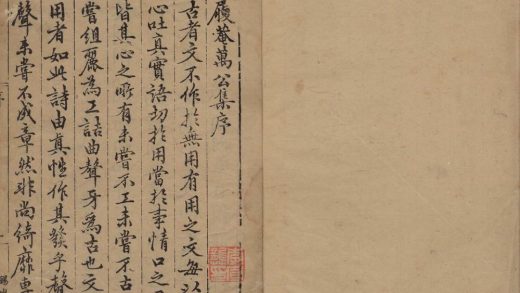 履菴萬公集序
古者文不作於無用有用之文每以
心吐真實語切於用當於事情口之
皆其心之所有未嘗不工未嘗不古
嘗組麗為工詰曲聱牙為古也文
用者如此詩由真性作其發乎聲
聲未嘗不成章然非尚綺靡專
序